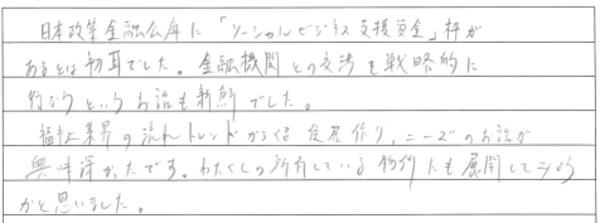 日本政策金融公庫に「ソーシャルビジネス支援資金」枠が
あるとは初耳でした。金融機関との交渉を戦略的に
行なうというお話も新鮮でした。
福祉業界の流れトレンドからくる 住居作り、ニーズのお話が
興味深かったです。わたくしの所有している物件にも展開して
かと思いました。